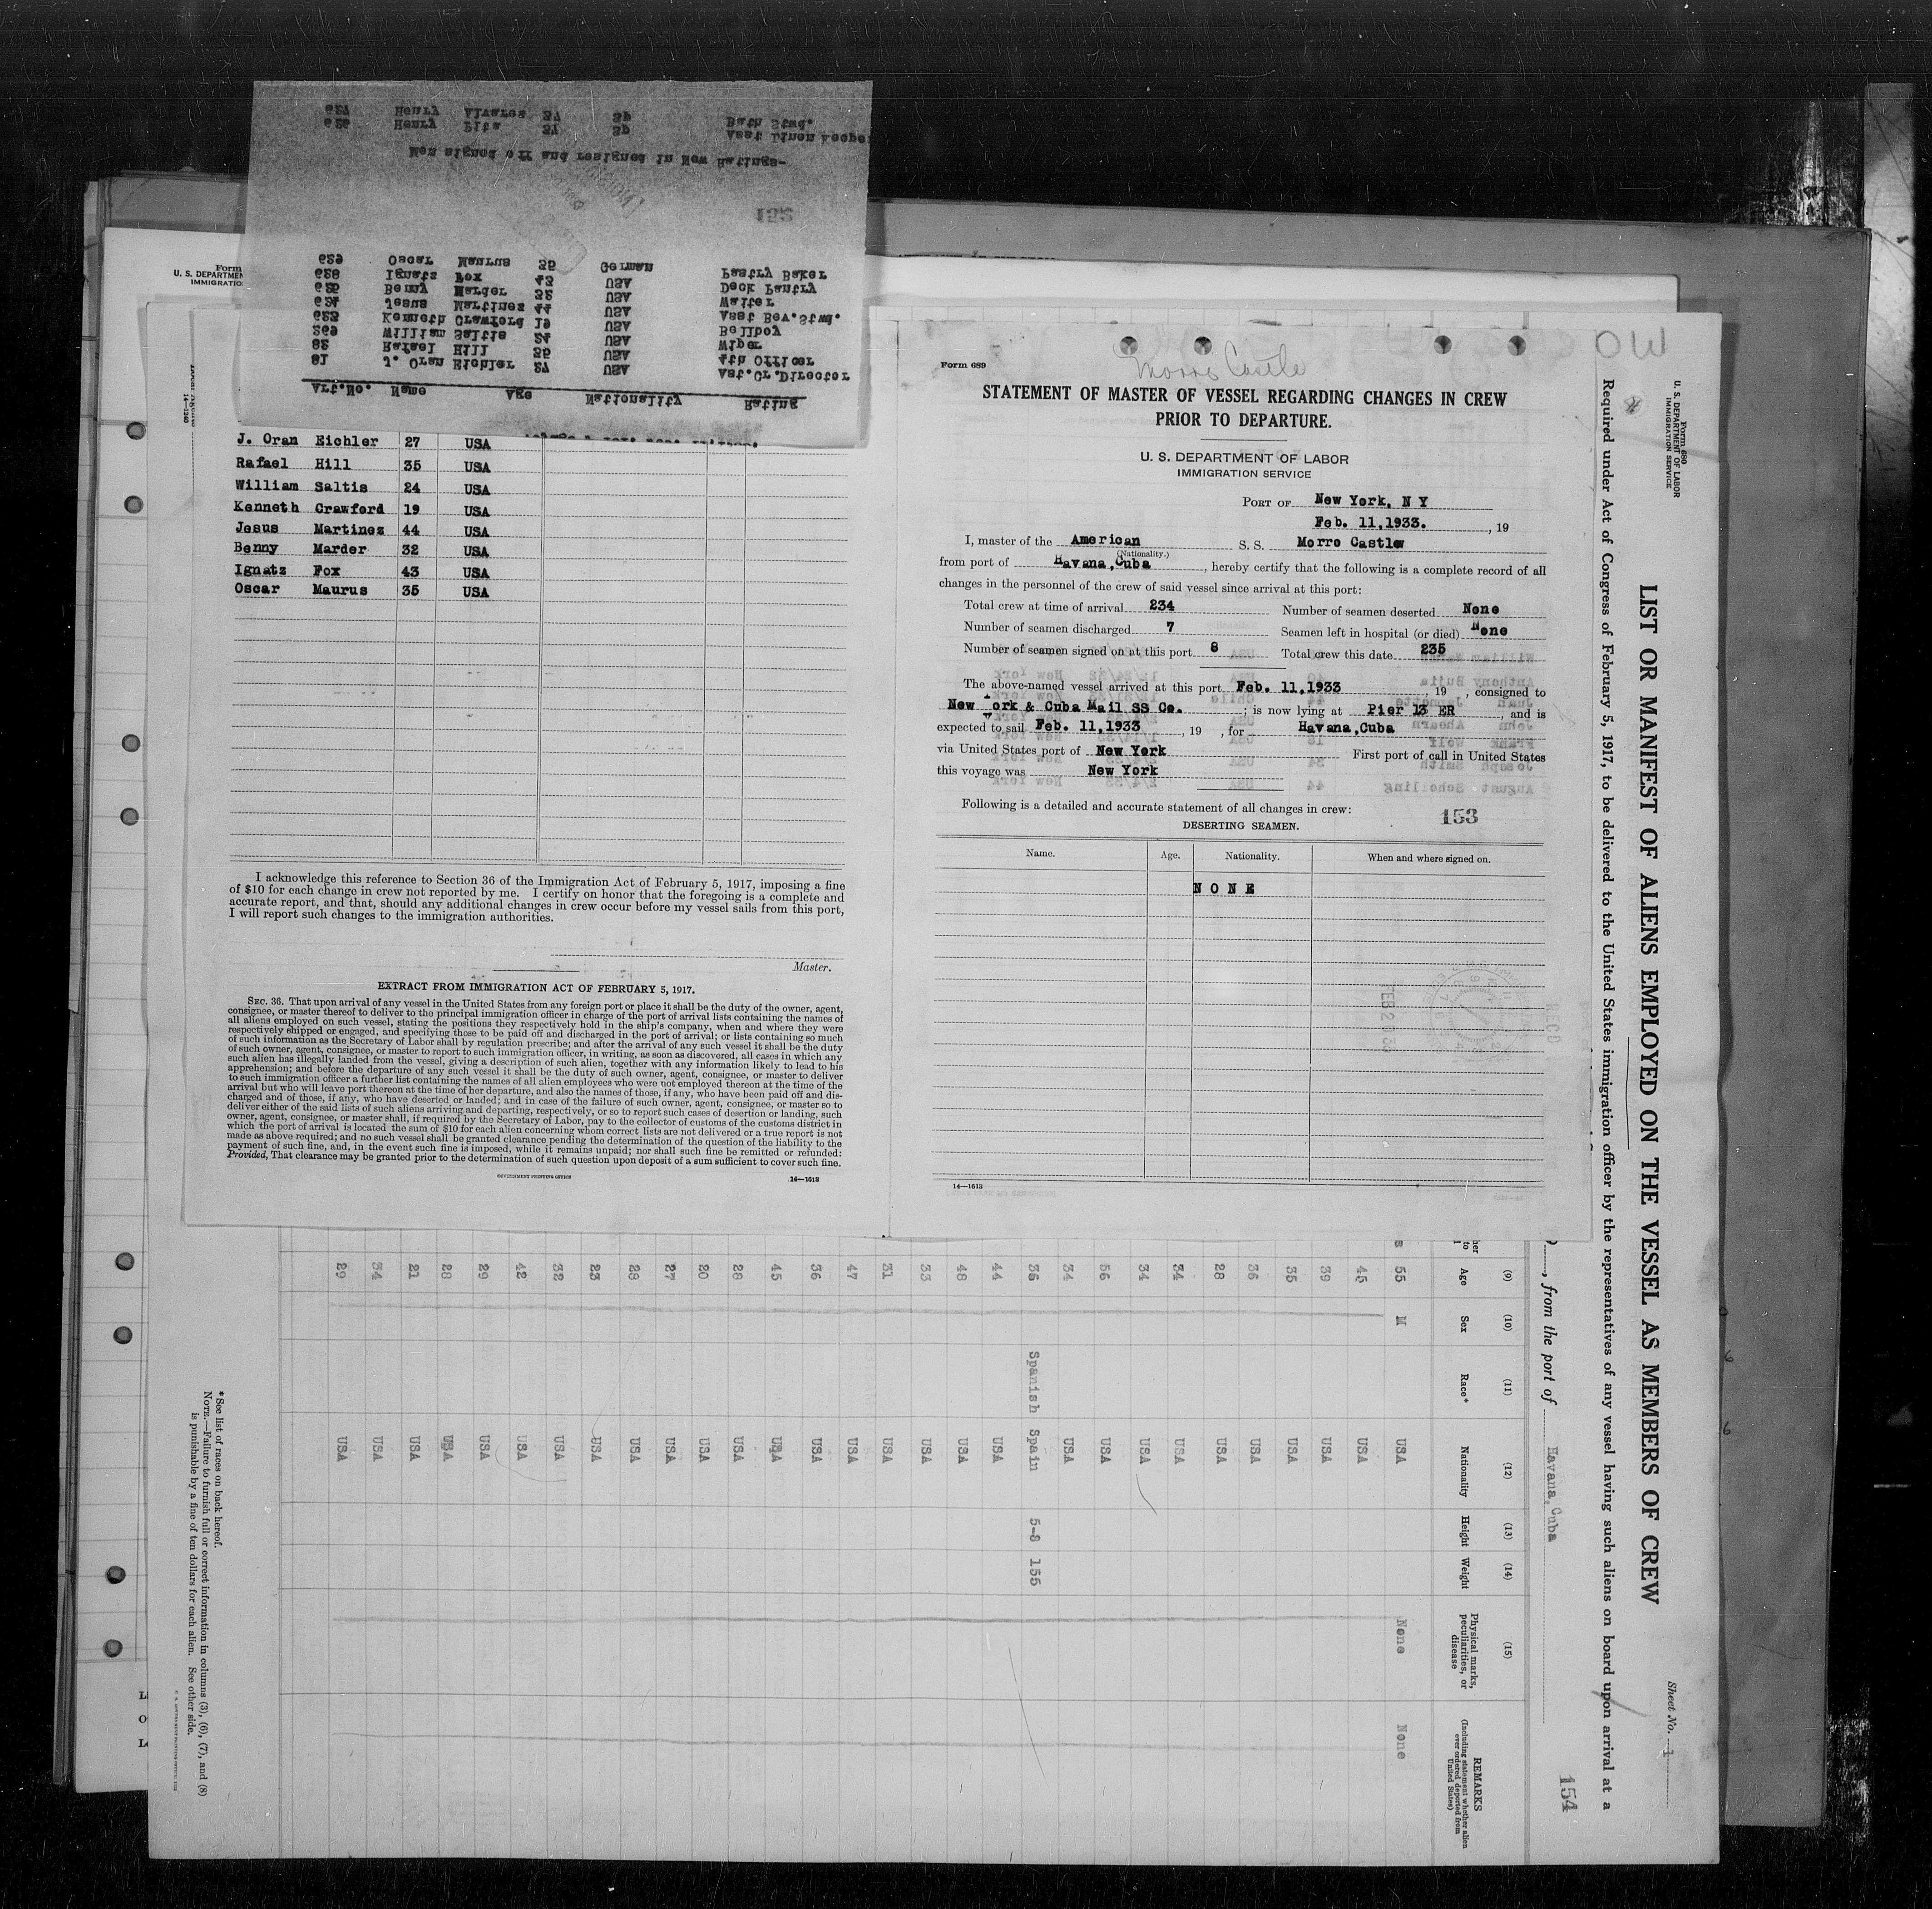 627 Henry Alvares 37 Sp Bath Stwd.
626 Henry Pita 37 Sp Asst Linen Keeper
Men signed off and resigned in New Ratings-
152
629 Oscar Maurus 35 German Pastry Baker
628 Ignatz Fox 43 USA Deck Pantry
625 Benny Marder 32 USA Waiter
624 Jesus Martinez 44 USA Asst Bev.Stwd.
623 Kenneth Crawford 19 USA Bellboy
269 William Saltis 24 USA Wiper
82 Rafael Hill 35 USA 4th Officer
81 J. Oran Eichler 27 USA Ast.Cr.Director
Art.No. Name Age Nationality Rating
Form
U. S. DEPARTMEN
IMMIGRATIO
14—1240
J. Oran Eichler 27 USA
Rafael Hill 35 USA
William Saltis 24 USA
Kenneth Crawford 19 USA
Jesus Martinez 44 USA
Benny Marder 32 USA
Ignatz Fox 43 USA
Oscar Maurus 35 USA
I acknowledge this reference to Section 36 of the Immigration Act of February 5, 1917, imposing a fine
of $10 for each change in crew not reported by me. I certify on honor that the foregoing is a complete and
accurate report, and that, should any additional changes in crew occur before my vessel sails from this port,
I will report such changes to the immigration authorities.
Master.
EXTRACT FROM IMMIGRATION ACT OF FEBRUARY 5, 1917.
SEC. 36. That upon arrival of any vessel in the United States from any foreign port or place it shall be the duty of the owner, agent,
consignee, or master thereof to deliver to the principal immigration officer in charge of the port of arrival lists containing the names of
all aliens employed on such vessel, stating the positions they respectively hold in the ship's company, when and where they were
respectively shipped or engaged, and specifying those to be paid off and discharged in the port of arrival; or lists containing so much
of such information as the Secretary of Labor shall by regulation prescribe; and after the arrival of any such vessel it shall be the duty
of such owner, agent, consignee, or master to report to such immigration officer, in writing, as soon as discovered, all cases in which any
such alien has illegally landed from the vessel, giving a description of such alien, together with any information likely to lead to his
apprehension; and before the departure of any such vessel it shall be the duty of such owner, agent, consignee, or master to deliver
to such immigration officer a further list containing the names of all alien employees who were not employed thereon at the time of the
arrival but who will leave port thereon at the time of her departure, and also the names of those, if any, who have been paid off and dis-
charged and of those, if any, who have deserted or landed; and in case of the failure of such owner, agent, consignee, or master so to
deliver either of the said lists of such aliens arriving and departing, respectively, or so to report such cases of desertion or landing, such
owner, agent, consignee, or master shall, if required by the Secretary of Labor, pay to the collector of customs of the customs district in
which the port of arrival is located the sum of $10 for each alien concerning whom correct lists are not delivered or a true report is not
made as above required; and no such vessel shall be granted clearance pending the determination of the question of the liability to the
payment of such fine, and, in the event such fine is imposed, while it remains unpaid; nor shall such fine be remitted or refunded:
Provided, That clearance may be granted prior to the determination of such question upon deposit of a sum sufficient to cover such fine.
GOVERNMENT PRINTING OFFICE 14—1613
Morro Castle
Form 689
STATEMENT OF MASTER OF VESSEL REGARDING CHANGES IN CREW
PRIOR TO DEPARTURE.
U. S. DEPARTMENT OF LABOR
IMMIGRATION SERVICE
PORT OF New York, N Y
Feb. 11,1933. , 19
I, master of the American S. S. Morro Castlw
(Nationality.)
from port of Havana,Cuba , hereby certify that the following is a complete record of all
changes in the personnel of the crew of said vessel since arrival at this port:
Total crew at time of arrival 234 Number of seamen deserted None
Number of seamen discharged 7 Seamen left in hospital (or died) None
Number of seamen signed on at this port 8 Total crew this date 235
The above-named vessel arrived at this port Feb. 11,1933 , 19 , consigned to
New York & Cuba Mail SS Co. ; is now lying at Pier 13 ER , and is
expected to sail Feb. 11,1933 , 19 , for Havana,Cuba
via United States port of New York First port of call in United States
this voyage was New York
Following is a detailed and accurate statement of all changes in crew:
153
DESERTING SEAMEN.
Name. Age. Nationality. When and where signed on.
N O N E
14—1613
OW
Form 680
U. S. DEPARTMENT OF LABOR
IMMIGRATION SERVICE
LIST OR MANIFEST OF ALIENS EMPLOYED ON THE VESSEL AS MEMBERS OF CREW
Sheet No. 1
Required under Act of Congress of February 5, 1917, to be delivered to the United States immigration officer by the representatives of any vessel having such aliens on board upon arrival at a
, from the port of Havana,Cuba
154
(9) (10) (11) (12) (13) (14) (15)
Age Sex Race* Nationality Height Weight Physical marks, peculiarities, or disease REMARKS
(Including statement whether alien ever ordered deported from United States)
55 M USA None None
45 USA
39 USA
35 USA
36 USA
28 USA
34 USA
34 USA
56 USA
34 USA
36 Spanish Spain 5-8 155
44 USA
48 USA
33 USA
31 USA
47 USA
36 USA
45 USA
28 USA
20 USA
27 USA
28 USA
23 USA
32 USA
42 USA
29 USA
28 USA
21 USA
34 USA
29 USA
*See list of races on back hereof.
NOTE.—Failure to furnish full or correct information in columns (3), (6), (7), and (8)
is punishable by a fine of ten dollars for each alien. See other side.